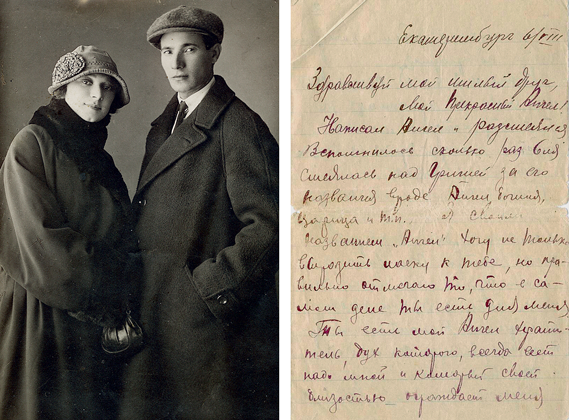 Екатеринбург 6/VIII
Здравствуй мой милый друг,
Мой прекрасный Ангел!
Написал Ангел и рассмеялся
Вспомнилось сколько раз Вы
смеялась над Гришей за его
названия вроде Ангел, богиня,
царица и т.п. А своим
названием „Ангел" хочу не только
выразить ласку к тебе, но пра-
вильно отмечаю то, что в са-
мом деле ты есть для меня
Ты есть мой Ангел храни-
тель, дух которого, всегда
надо мной и который своей
близостью ограждает меня